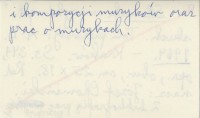 i kompozycji muzyków oraz
prac o muzykach.